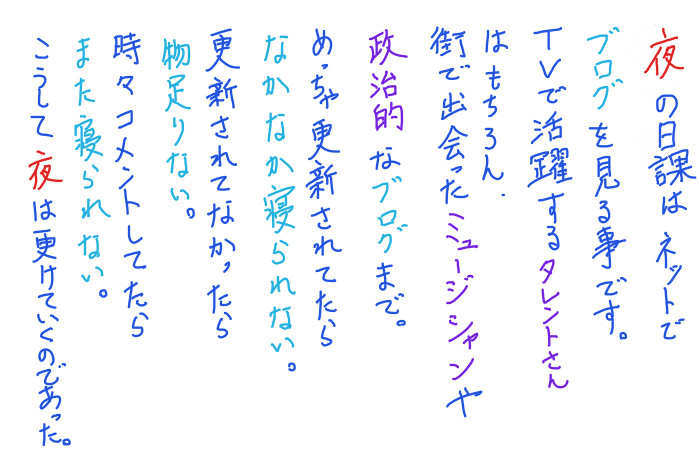 夜の日課はネットで
ブログを見る事です。
TVで活躍するタレントさん
はもちろん.
街で出会ったミュージシャンや
政治的なブログまで。
めっちゃ更新されてたら
なかなか寝られない。
更新されてなかったら
物足りない。
時々コメントしてたら
また寝られない。
こうして夜は更けていくのであった。